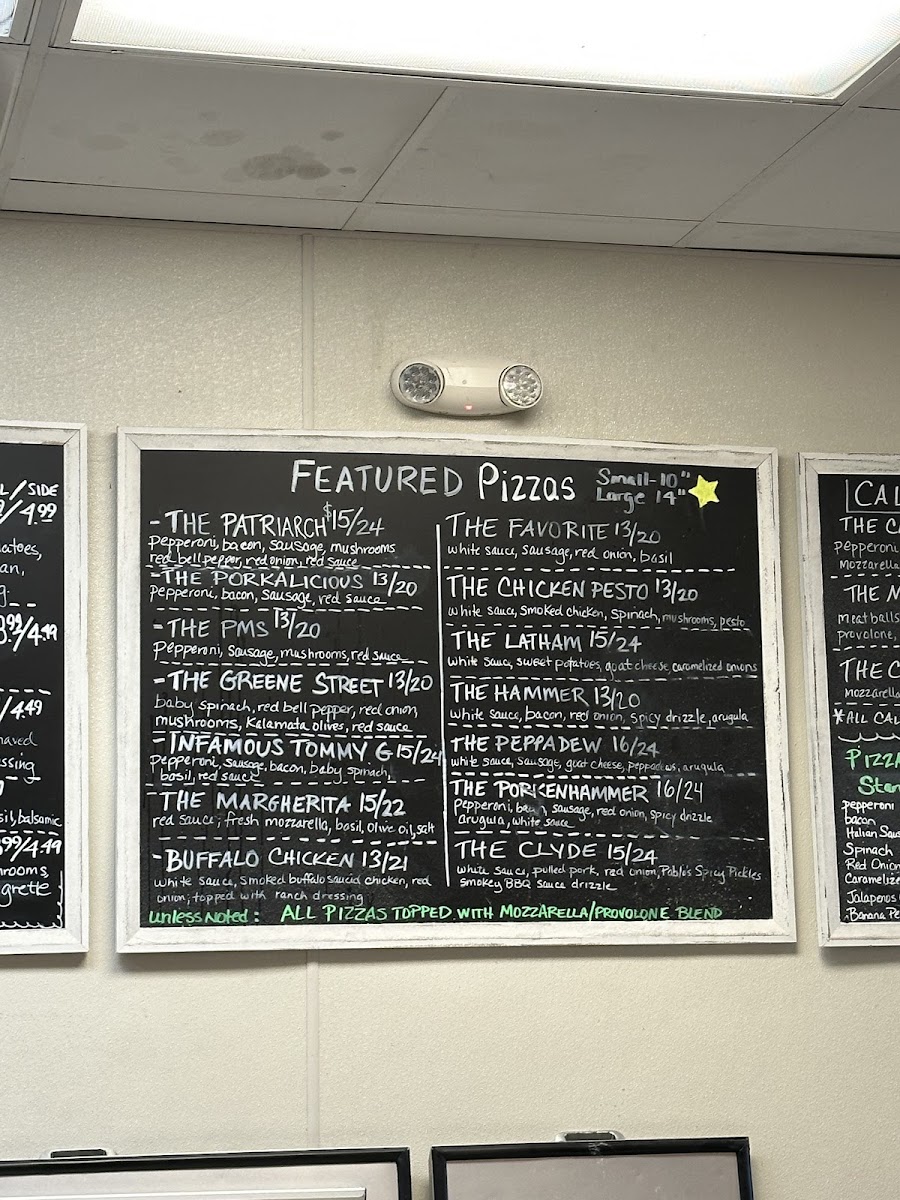 L/SIDE
9/4.99
atoes,
an,
9.99/4.49
/4.49
haved
ssing
sil, balsamic
99/4.49
hrooms,
grette
FEATURED Pizzas
Small-10"
Large 14"
-THE PATRIARCH $15/24
pepperoni, bacon, sausage, mushrooms
red bell pepper, red onion, red sauce
-THE PORKALICIOUS 13/20
Pepperoni, bacon, Sausage, red sauce
-THE PMS 13/20
Pepperoni, Sausage, mushrooms, red sauce
-THE GREENE STREET 13/20
baby spinach, red bell pepper, red onion,
mushrooms, Kalamata olives, red sauce
-INFAMOUS TOMMY G 15/24
Pepperoni, Sausage, bacon, baby spinach,
basil, red sauce
-THE MARGHERITA 15/22
red sauce; fresh mozzarella, basil, olive oil, salt
-BUFFALO CHICKEN 13/21
white sauce, smoked buffalo sauced chicken, red
onion; topped with ranch dressing
THE FAVORITE 13/20
white sauce, sausage, red onion, basil
THE CHICKEN PESTO 13/20
white sauce, smoked chicken, spinach, mushrooms, pesto
THE LATHAM 15/24
white sauce, sweet potatoes, goat cheese caramelized onions
THE HAMMER 13/20
white sauce, bacon, red onion, spicy drizzle, arugula
THE PEPPADEW 16/24
white sauce, sausage, goat cheese, peppadews, arugula
THE PORKENHAMMER 16/24
Pepperoni, sausage, red onion, spicy drizzle
arugula, white sauce
THE CLYDE 15/24
white sauce, pulled pork, red onion, Pablo's Spicy Pickles
Smokey BBQ sauce drizzle
unless Noted: ALL PIZZAS TOPPED WITH MOZZARELLA/PROVOLONE BLEND
CAL
THE C
pepperoni
mozzarella
THE M
meatballs
provolone,
THE C
mozzarella
*ALL CAL
PIZZA
Stan
pepperoni
bacon
Italian Saus
Spinach
Red Onion
Caramelize
Jalapenos
Banana Pe